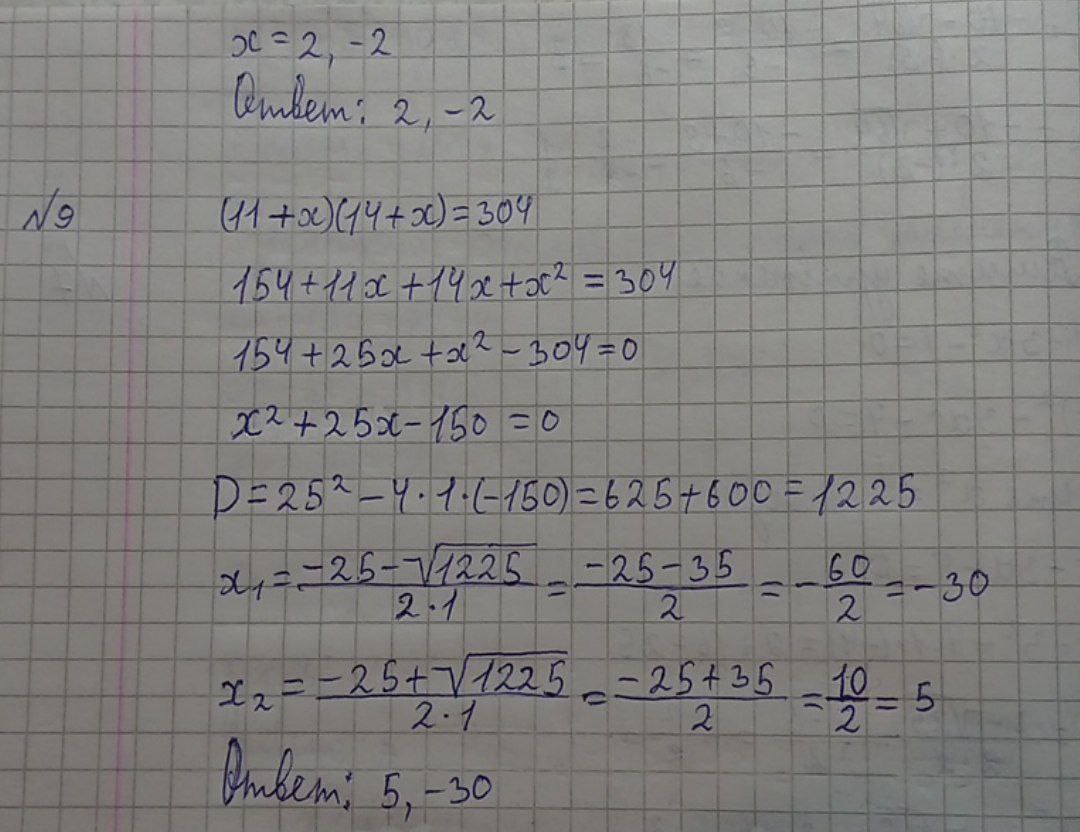 x = 2, -2
Ответ: 2, -2
№9 (11+x)(14+x)=304
154+11x+14x+x² = 304
154+25x+x²-304=0
x²+25x-150 = 0
D=25²-4·1·(-150)=625+600=1225
x₁ = (-25-√1225)/(2·1) = (-25-35)/2 = -60/2 = -30
x₂ = (-25+√1225)/(2·1) = (-25+35)/2 = 10/2 = 5
Ответ: 5, -30